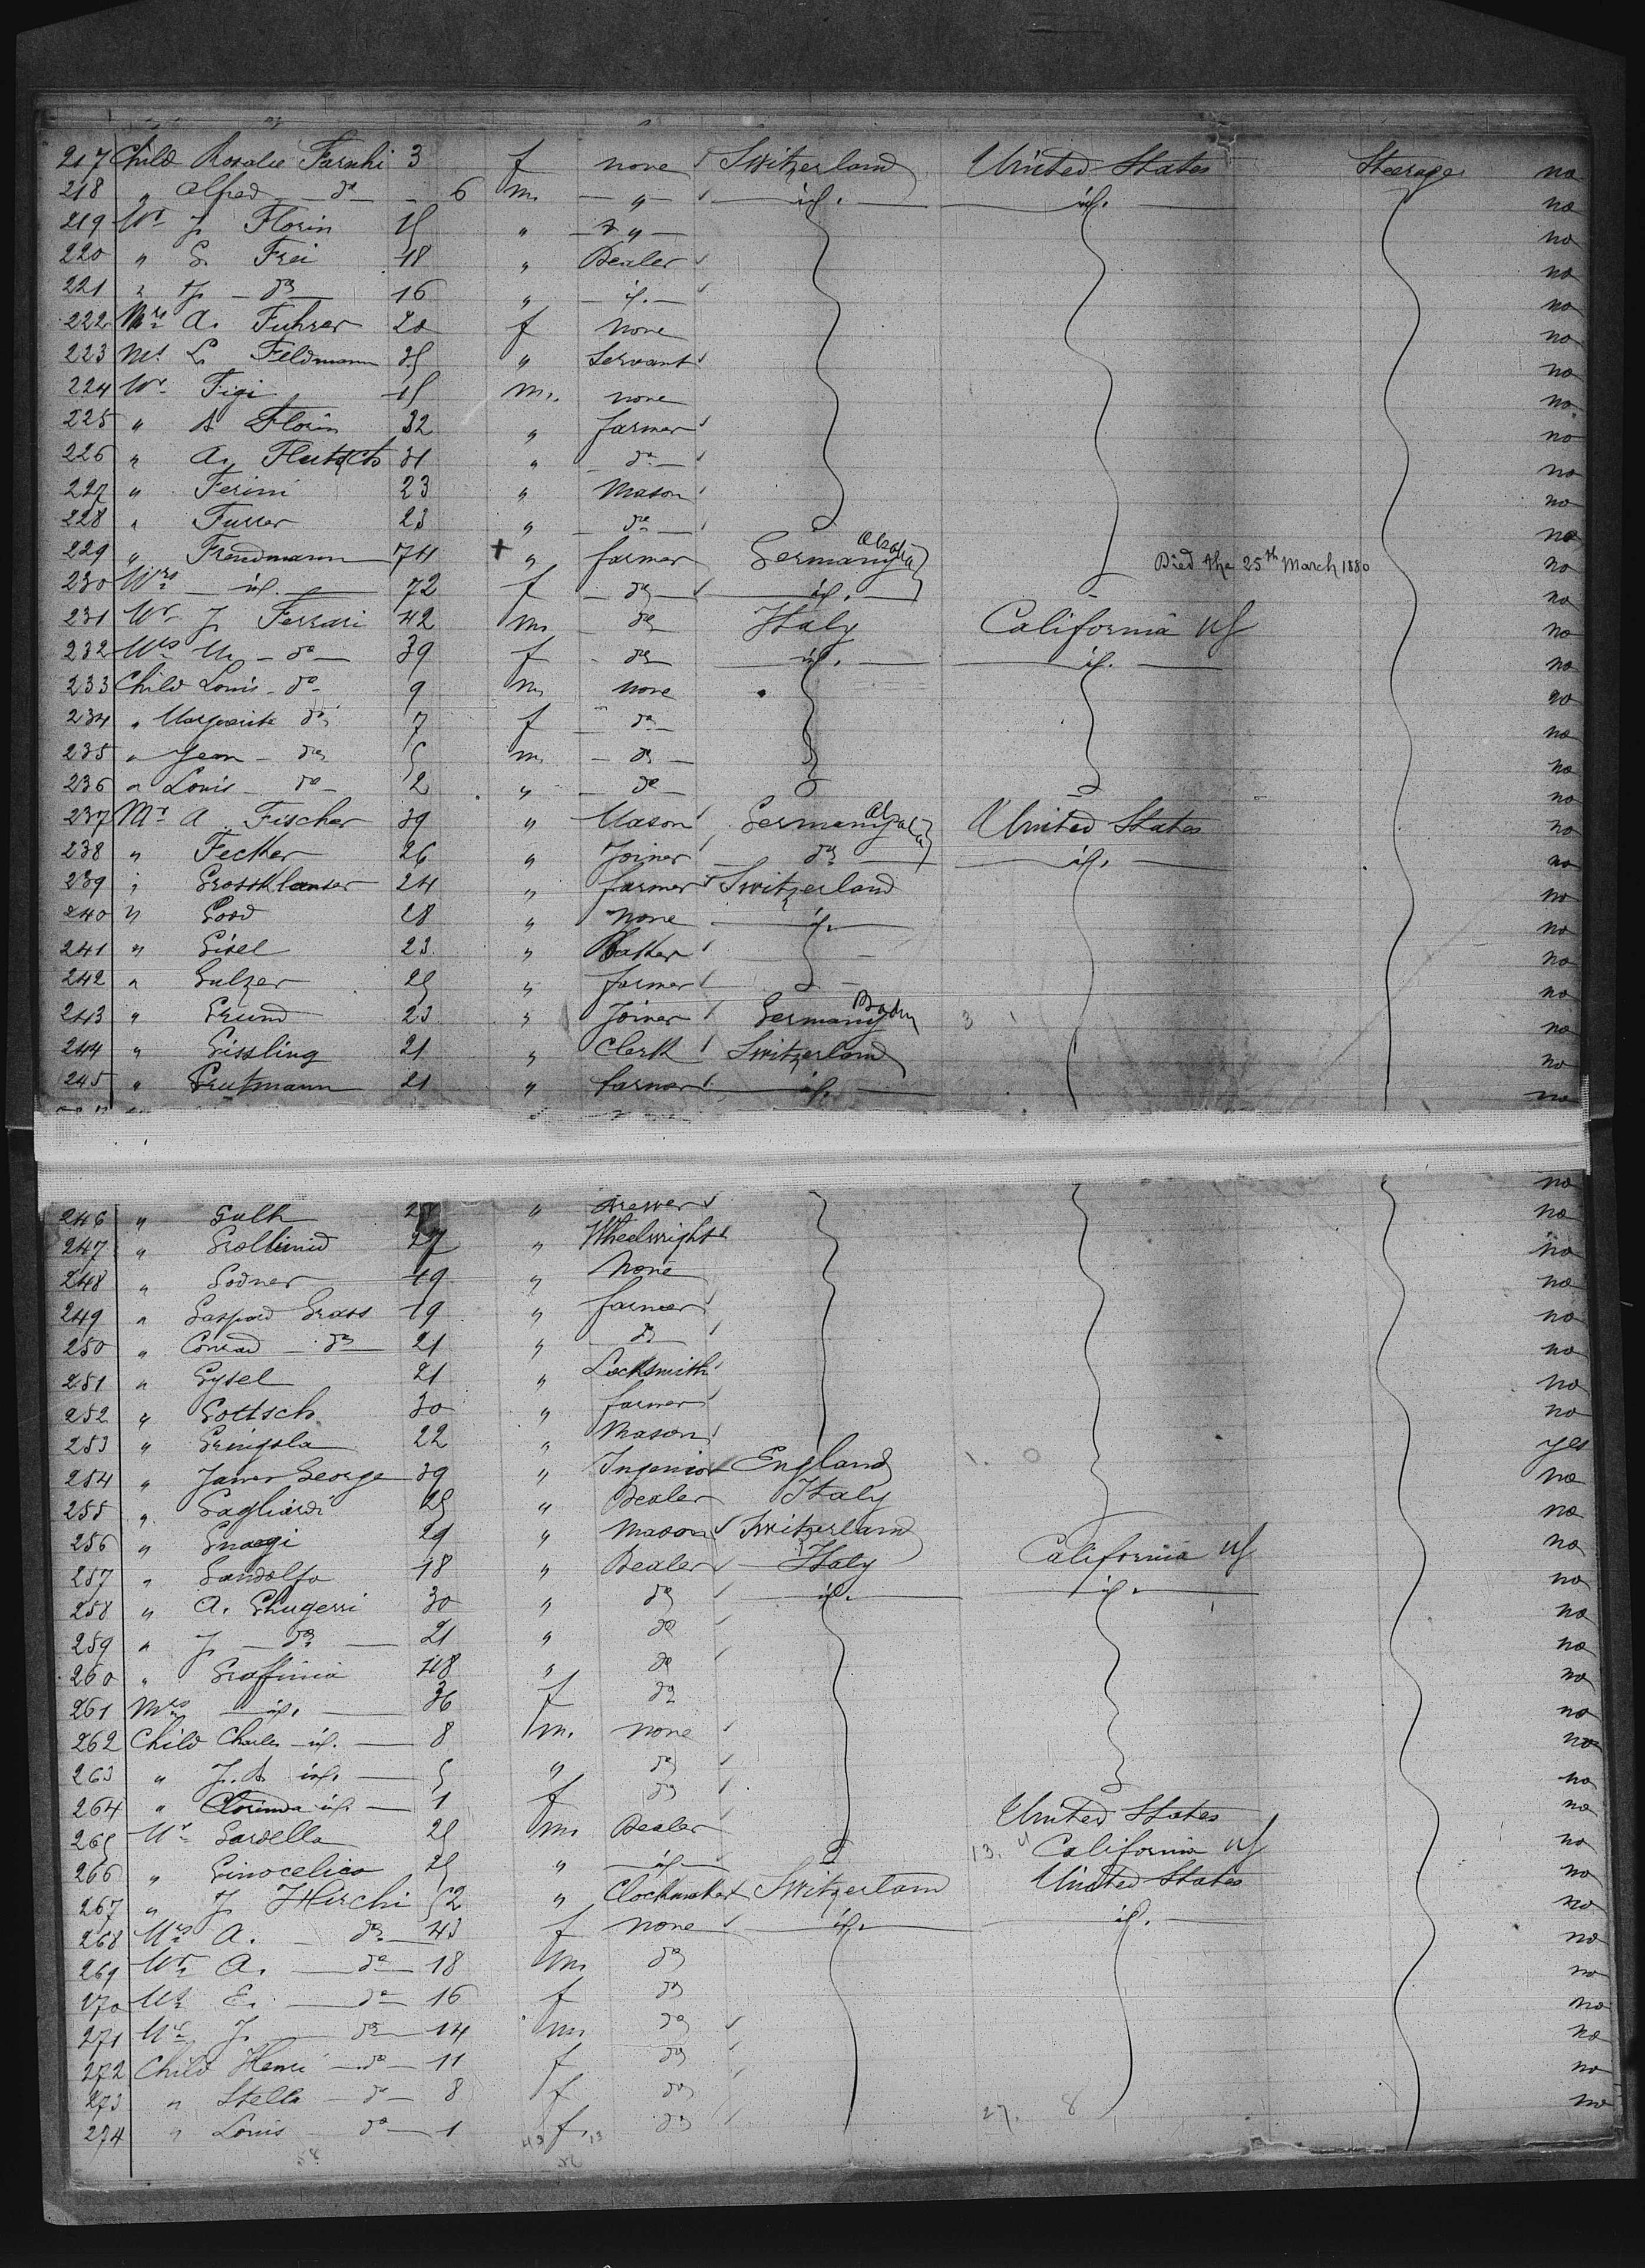 217 Child Rosalie Faruhi 3 f none Switzerland United States Steerage no
218 " Alfred do 6 m. " id. id. no
219 Mr J. Florin 15 " " no
220 " G. Frei 18 " Dealer no
221 " do 16 " id. no
222 Mrs A. Fuhrer 20 f none no
223 Ms L. Feldmann 35 " Servant no
224 Mr. Figi 15 m. none no
225 " A Florin 32 " farmer no
226 " A. 31 " do no
227 " Ferini 23 " Mason no
228 " Furrer 23 " do no
229 " Freudmann 74 + " farmer Germany Alsatia Died the 25th March 1880 no
230 Mrs id. 72 f do id. no
231 Mr J. Ferrari 42 m. do Italy California US no
232 Mrs M. do 39 f do id. id. no
233 Child Louis do 9 m. none no
234 " Marguerite do 7 f do no
235 " Jean do 5 m. do no
236 " Louis do 2 " do no
237 Mr A. Fischer 39 " Mason Germany Alsatia United States no
238 " Fecker 26 " Joiner do id. no
239 " Grossklauser 24 " farmer Switzerland no
240 " Good 28 " none id. no
241 " Gisel 23 " Baker no
242 " Gulzer 25 " farmer no
243 " Grund 23 " Joiner Germany Baden no
244 " Gissling 21 " Clerk Switzerland no
245 " Grutmann 21 " farmer id. no
no
246 " Guth " Brewer no
247 " Grollimid 27 " Wheelwright no
248 " Godner 19 " None no
249 " Gaspard Grass 19 " farmer no
250 " Conrad do 21 " do no
251 " Gysel 21 " Locksmith no
252 " Gottsch 30 " farmer no
253 " Gringola 22 " Mason yes
254 " James George 39 " Ingenior England no
255 " Gagliardi 25 " Dealer Italy no
256 " Gnaegi 29 " Mason Switzerland no
257 " Gandolfo 18 " Dealer Italy California US no
258 " A. Ghugerri 30 " do id. id. no
259 " J. do 21 " do no
260 " Graffinia 48 " do no
261 Mrs id. 36 f do no
262 Child Charles id. 8 m. none no
263 " J. A id. 5 " do no
264 " Clorinda id. 1 f do United States no
265 Mr Gardella 25 m. Dealer California US no
266 " Ginocelico 25 " id. United States no
267 " J. Hirchi 52 " Clockmaker Switzerland id. no
268 Mrs A. do 43 f none id. no
269 Mr A. do 18 m. do no
270 Ms E. do 16 f do no
271 Mr J. do 14 m. do no
272 Child Henri do 11 f do no
273 " Stella do 8 f do no
274 " Louis do 1 f. do
27. 8